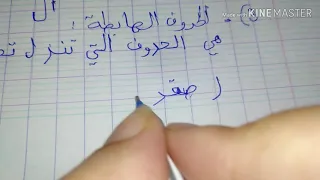 ال
Made with KINEMASTER
الحروف الهابطة :
هي الحروف التي تنزل
ر صغر